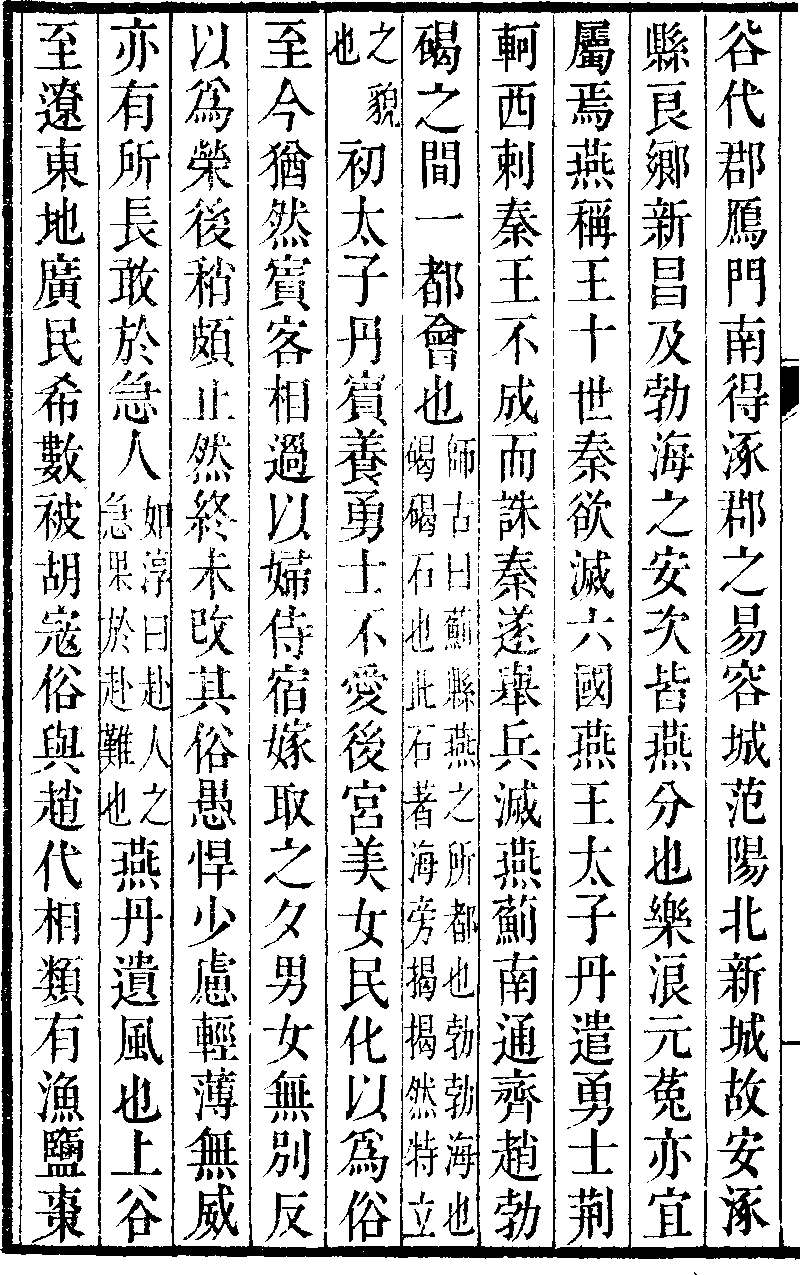 谷代郡鴈門南得涿郡之易容城范陽北新城故安涿
縣良鄉新昌及勃海之安次皆燕分也樂浪元菟亦宜
屬焉燕稱王十世秦欲滅六國燕王太子丹遣勇士荆
軻西刺秦王不成而誅秦遂舉兵滅燕薊南通齊趙勃
碣之間一都會也師古曰薊縣燕之所都也勃勃海也碣碣石也此石著海旁揭揭然特立
之貌也初太子丹賓養勇士不愛後宮美女民化以爲俗
至今猶然賓客相過以婦侍宿嫁取之夕男女無別反
以爲榮後稍頗止然終未改其俗愚悍少慮輕薄無威
亦有所長敢於急人如淳曰赴人之急果於赴難也燕丹遺風也上谷
至遼東地廣民希數被胡寇俗與趙代相類有漁鹽棗